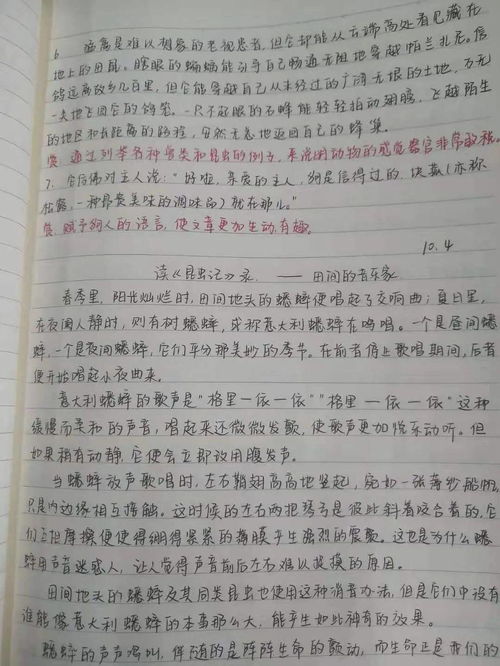 6 鸢鹰是难以想象的老视患者，但它却能从云端高处看见藏在
地上的田鼠。瞎眼的蝙蝠能引导自己畅通无阻地穿越帕兰扎尼。信
鸽远离故乡几百里，但它能穿越自己从未经过的广阔无垠的土地，万无
一失地飞回它的鸽笼。一只不起眼的石蜂能轻轻拍动翅膀，飞越陌生
的地区和长距离的路程，安然无恙地返回自己的蜂巢。
赏：通过列举各种鸟类和昆虫的例子，来说明动物的感觉器官非常敏锐。
7. 它仿佛对主人说：“好啦，亲爱的主人，狗是信得过的，块菰（亦称
松露，一种最美味的调味品）就在那儿。”
赏：赋予狗人的语言，使文章更加生动有趣。
10.4
读《昆虫记》录 —— 田间的音乐家
春季里，阳光灿烂时，田间地头的蟋蟀便唱起了交响曲；夏日里，
在夜阑人静时，则有树蟋蟀，或称意大利蟋蟀在鸣唱。一个是昼间蟋
蟀，一个是夜间蟋蟀，它们平分那美妙的季节。在前者停止歌唱期间，后者
便开始唱起小夜曲来。
意大利蟋蟀的歌声是“格里一依一依”“格里一依一依”这种
缓慢而柔和的声音，唱起来还微微发颤，使歌声更加悦耳动听。但
如果稍有动静，它便会立即改用腹发声。
当蟋蟀放声歌唱时，左右鞘翅高高地竖起，宛如一张薄纱船帆，
只是内边缘相互接触。这时候的左右两把琴弓是彼此斜着咬合着的，它
们互相摩擦便使得绷得紧紧的薄膜产生强烈的震颤。这也是为什么蟋
蟀用声音迷惑人，让人觉得声音前后左右难以捉摸的原因。
田间地头的蟋蟀及其同类昆虫也使用这种消音办法，但是它们中没有
谁能像意大利蟋蟀的本事那么大，能产生如此神奇的效果。
蟋蟀的声声鸣叫，伴随的是阵阵生命的颤动，而生命正是我们的